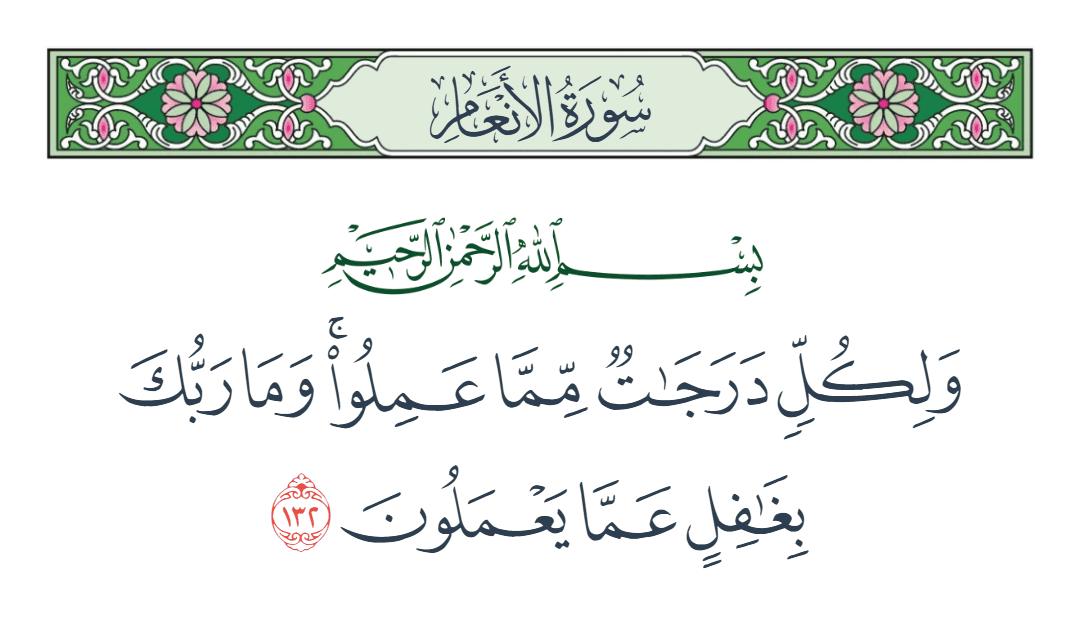 سُورَةُ الأَنْعَامِ
بِسْمِ ٱللَّهِ ٱلرَّحْمَٰنِ ٱلرَّحِيمِ
وَلِكُلٍّ دَرَجَٰتٌ مِّمَّا عَمِلُوا۟ ۚ وَمَا رَبُّكَ
بِغَٰفِلٍ عَمَّا يَعْمَلُونَ ١٣٢